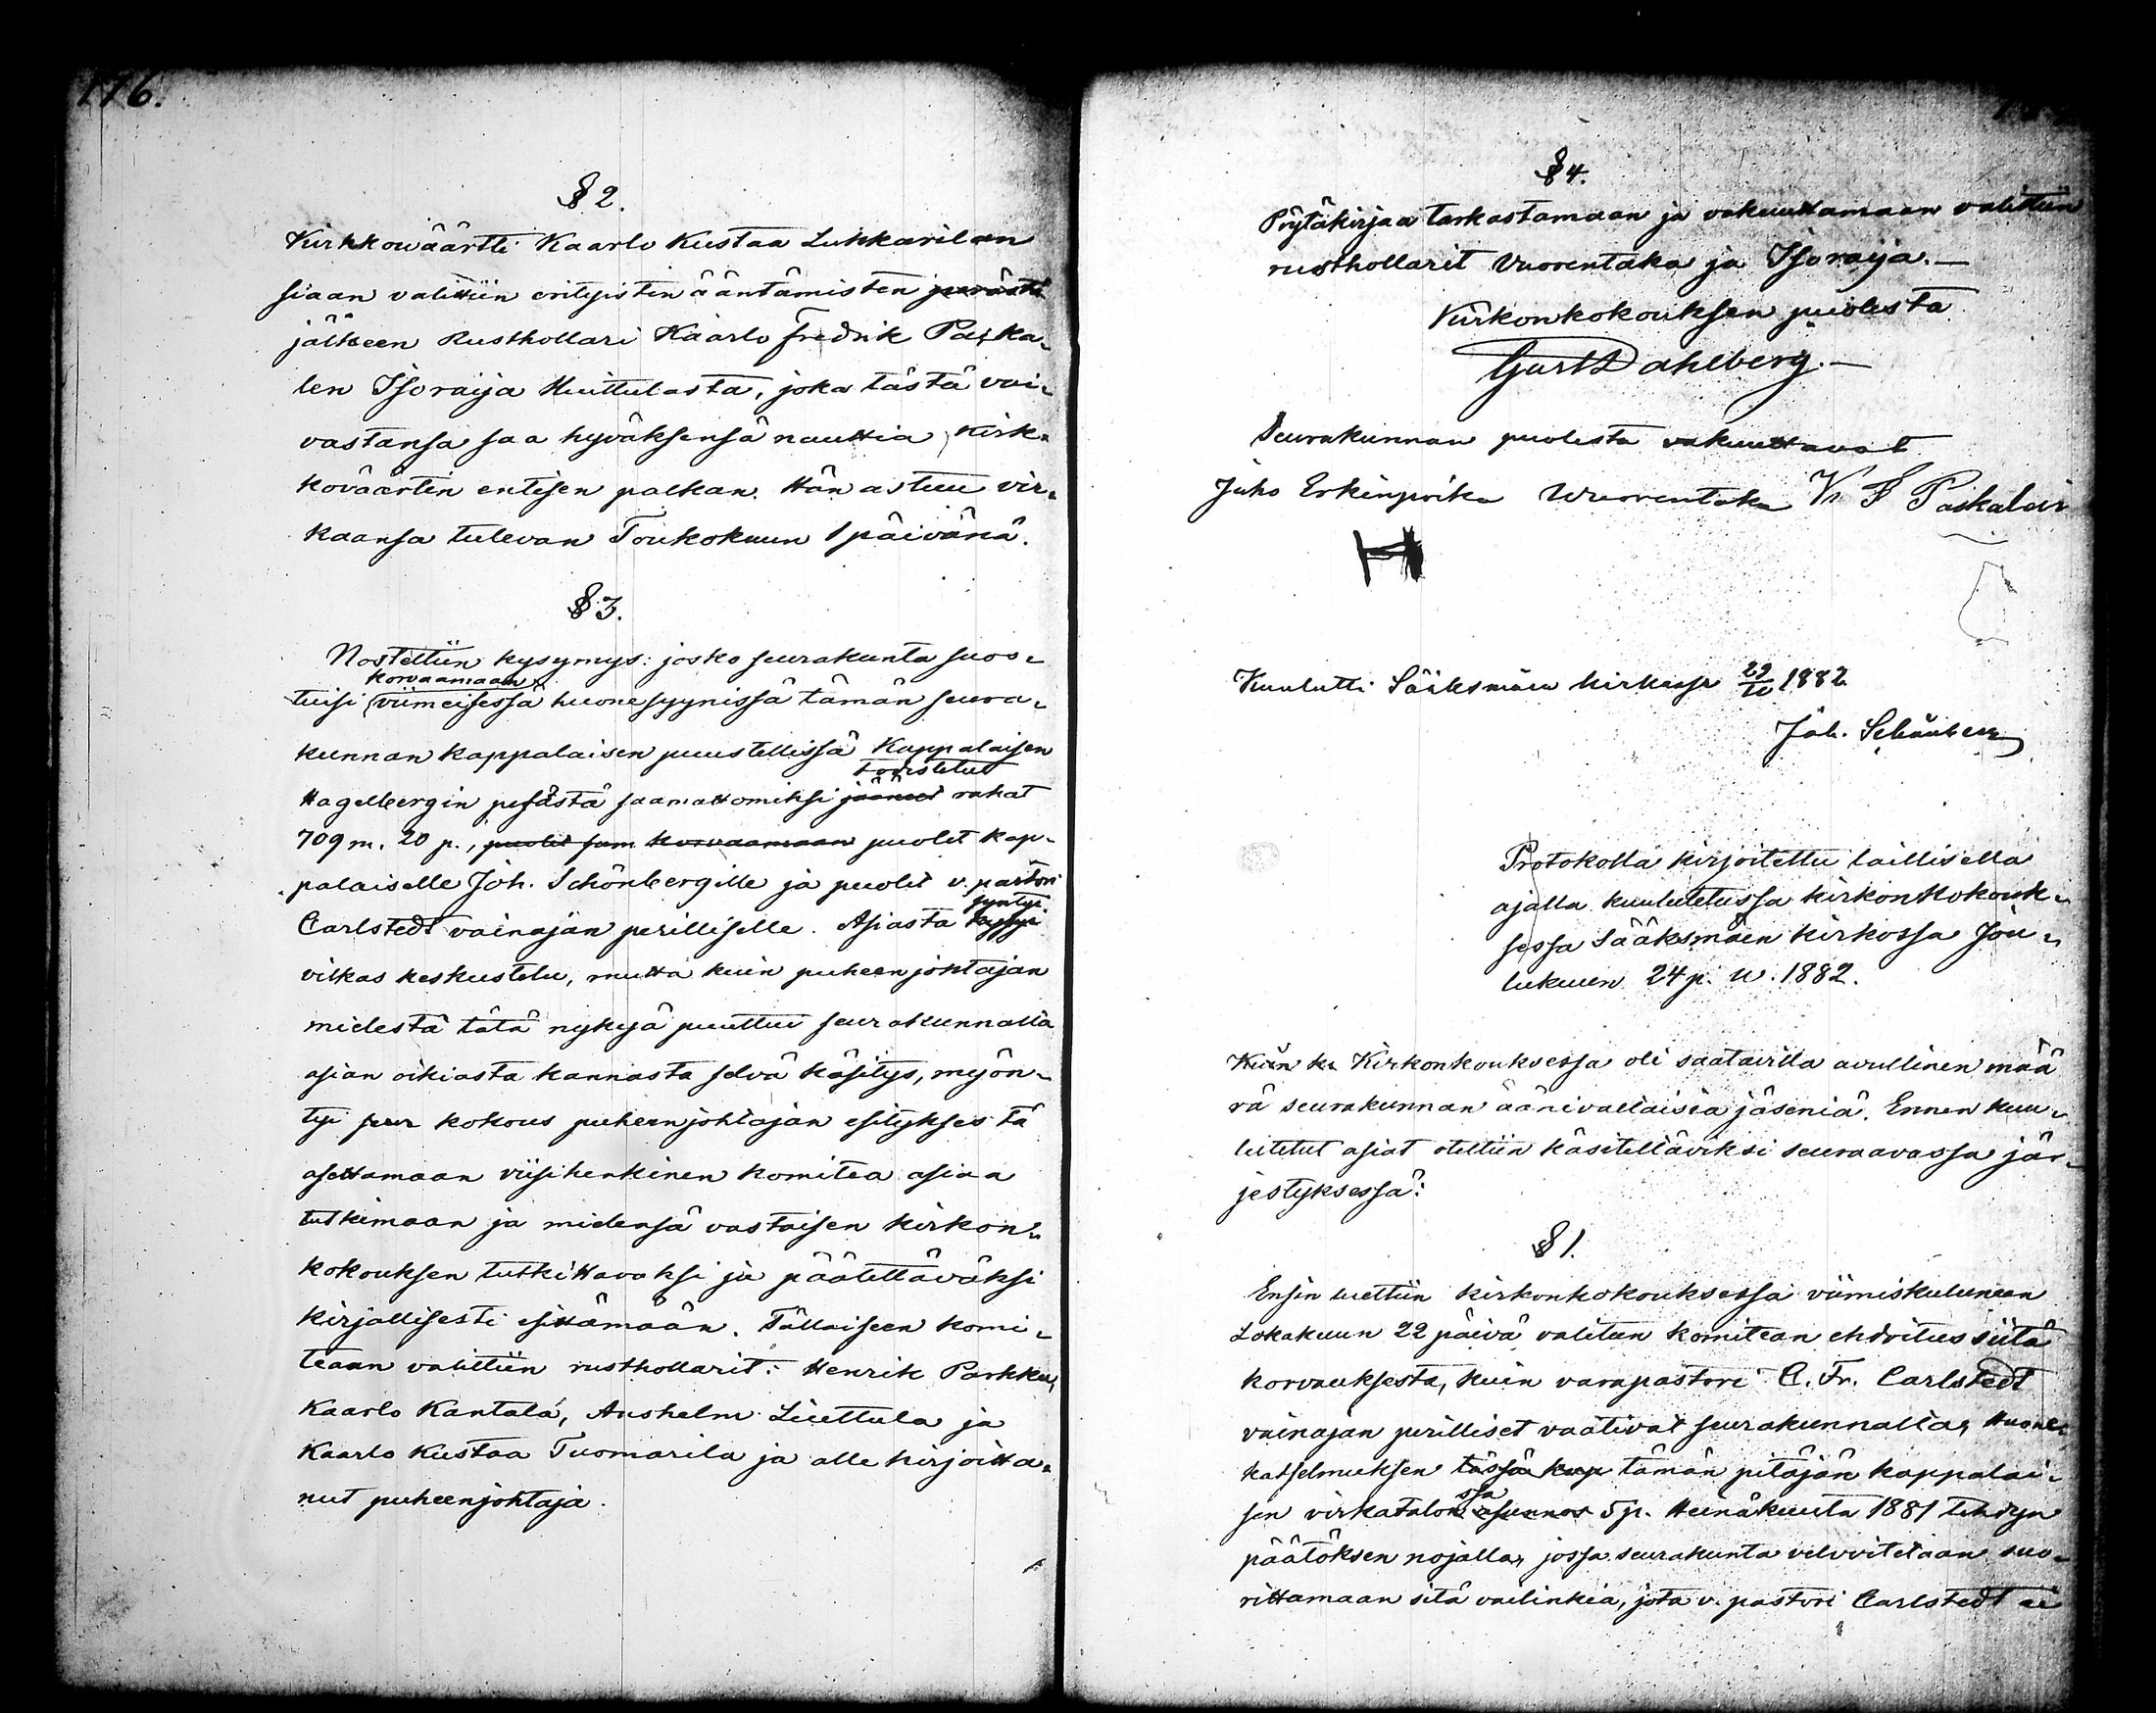 176.
§ 2.
Kirkkowäärtti Kaarlo Kustaa Lukkarilan
siaan valittiin erityisten ääntämisten perästä
jälkeen Rusthollari Kaarlo Fredrik Paska-
len Isoraija Huittulasta, joka tästä vai-
vastansa saa hyväksensä nauttia kirk-
kovääртin entisen palkan. Hän astuu vir-
kaansa tulevan Toukokuun 1 päivänä.
§ 3.
Nostettiin kysymys: josko seurakunta suos-
korvaamaan
tuisi viimeisessä huonesyynissä tämän seura-
kunnan kappalaisen puustellissä Kappalaisen
todistetut
Hagelbergin pesästä saamattomiksi jääneet rahat
709 m. 20 p., puolet sum korvaamaan puolet kap-
palaiselle Joh. Schönbergille ja puolet v. pastori
syntyi
Carlstedt vainajan perilliselle. Asiasta
vilkas keskustelu, mutta kuin puheenjohtajan
mielestä tätä nykyä puuttui seurakunnalla
asian oikiasta kannasta selvä käsitys, myön-
tyi seur kokous puheenjohtajan esityksestä
asettamaan viisihenkinen komitea asiaa
tutkimaan ja mielensä vastaisen kirkon-
kokouksen tutkittavaksi ja päätettäväksi
kirjallisesti esittämään. Tällaiseen komi-
teaan valittiin rusthollarit: Henrik Parkku,
Kaarlo Kantala, Anshelm Liuttula ja
Kaarlo Kustaa Tuomarila ja alle kirjoitta-
nut puheenjohtaja.
§ 4.
Pöytäkirjaa tarkastamaan ja vakuuttamaan valittiin
rusthollarit Vuorentaka ja Isoraija.—
Kirkonkokouksen puolesta
Gust Dahlberg.—
Seurakunnan puolesta vakuuttavat
Juho Erkinpoika Wuorentaka K F Paskalen
Kuulutti Sääksmäen kirkossa 29/10 1882
Joh. Schönberg
Protokolla kirjoitettu laillisella
ajalla kuulutetussa kirkonkokouk-
sessa Sääksmäen kirkossa Jou-
lukuun 24 p. w. 1882.
Kuin ku Kirkonkouksessa oli saatavilla avullinen mää
rä seurakunnan äänivaltaisia jäseniä. Ennen kuu-
lutetut asiat otettiin käsiteltäviksi seuraavassa jär-
jestyksessä:
§ 1.
Ensin luettiin kirkonkokouksessa viimiskuluneen
Lokakuun 22 päivä valitun komitean ehdoitus siitä
korvauksesta, kuin varapastori C. Fr. Carlstedt
vainajan perilliset vaativat seurakunnalta, Huone-
katselmuksen tässä kap tämän pitäjän kappalai-
ssa
sen virkatalon asunnos 5 p. Heinäkuuta 1881 tehdyn
päätöksen nojalla, jossa seurakunta velvoitetaan suo-
rittamaan sitä vailinkia, jota v. pastori Carlstedt ei